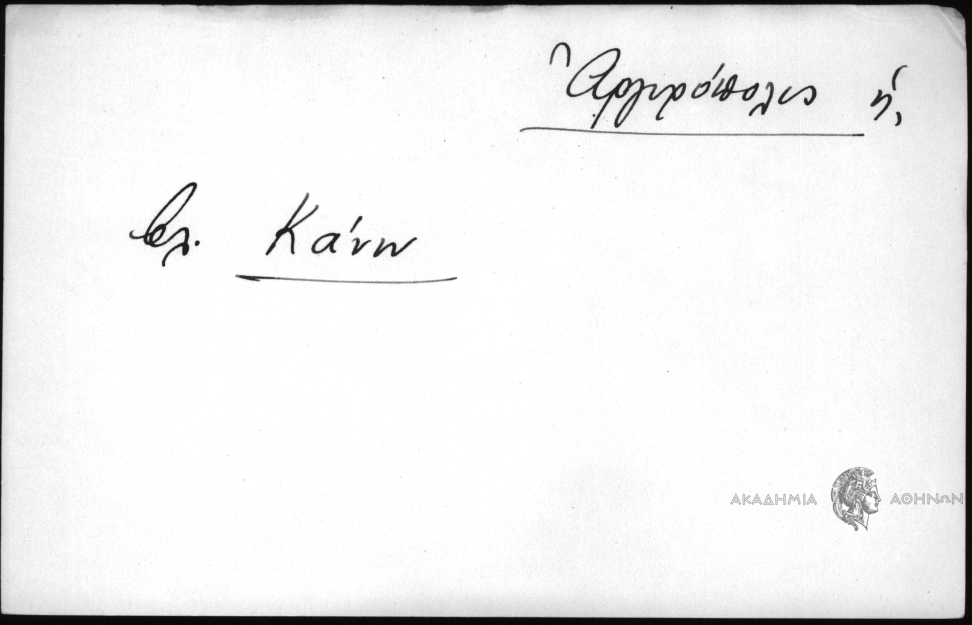 Ἀργυρόπολις ἡ,
βλ. Κάνω
ΑΚΑΔΗΜΙΑ ΑΘΗΝΩΝ